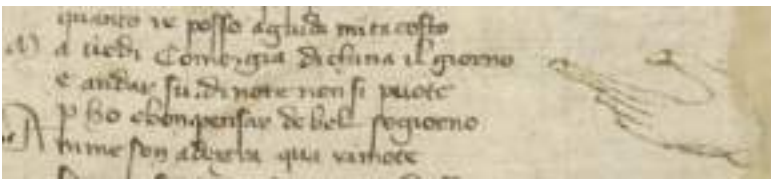 quanto ie posso aghudi mi ta costo
a uedi Come gia dichina il giorno
e andar su. di note non si puote
p ho e bon pensar de bel sogiorno
Anime son adextra qua